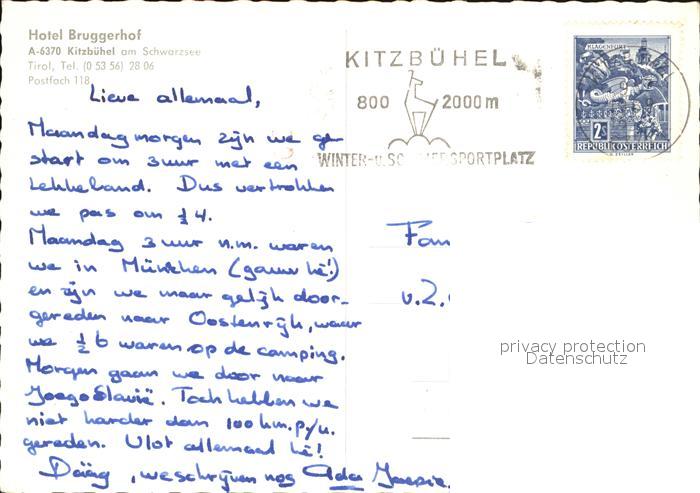 Hotel Bruggerhof
A-6370 Kitzbühel am Schwarzsee
Tirol, Tel. (0 53 56) 28 06
Postfach 118
KITZBÜHEL
800 2000m
WINTER-u. SPORTPLATZ
KLAGENFURT
2s
REPUBLIK ÖSTERREICH
Lieve allemaal,
Maandagmorgen zijn we ge-
start om 3 uur met een
lekkeband. Dus vertrokken
we pas om ½ 4.
Maandag 3 uur n.m. waren
we in München (gauw hè!)
en zijn we maar gelijk door-
gereden naar Oostenrijk, waar
we ½ 6 waren op de camping.
Morgen gaan we door naar
Joegoslavië. Toch hebben we
niet harder dan 100 km. p/u.
gereden. Vlot allemaal hè!
Dáág, we schrijven nog Ada
Fam
v.Z.
privacy protection
Datenschutz